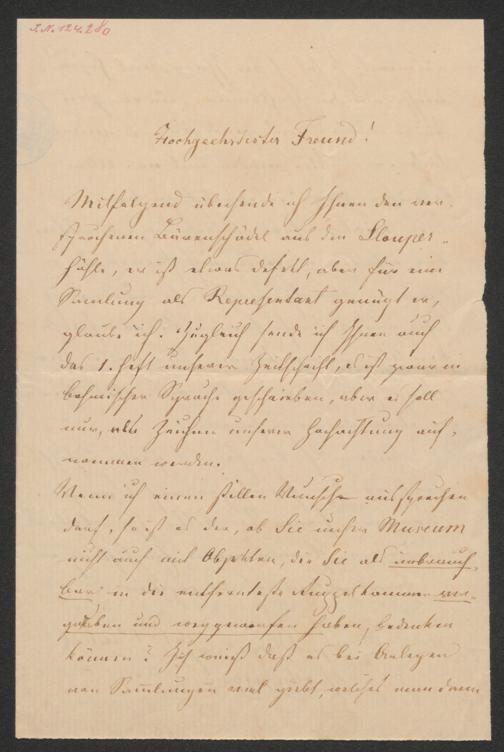 I.N. 124.280
Hochgeehrtester Freund!
Mitfolgend übersende ich Ihnen den ver-
sprochenen Bärenschädel aus den Slouper-
höhle, er ist etwas defekt, aber für eine
Samlung als Representant genügt er,
glaube ich. Zugleich sende ich Ihnen auch
das 1. Heft unserer Zeitschrift, es ist zwar in
bohmischer Sprache geschrieben, aber es soll
nur, als Zeichen unserer Hochachtung auf-
nommen werden.
Wenn ich einen stillen Wunsch aussprechen
darf, so ist es der, ob Sie unser Museum
nicht auch mit Objekten, die Sie als unbrauch-
bar in die entfernteste ver-
graben und weggeworfen haben, bedenken
können? Ich weiß daß es bei Anlegen
von Samlungen viel giebt, welches man dann